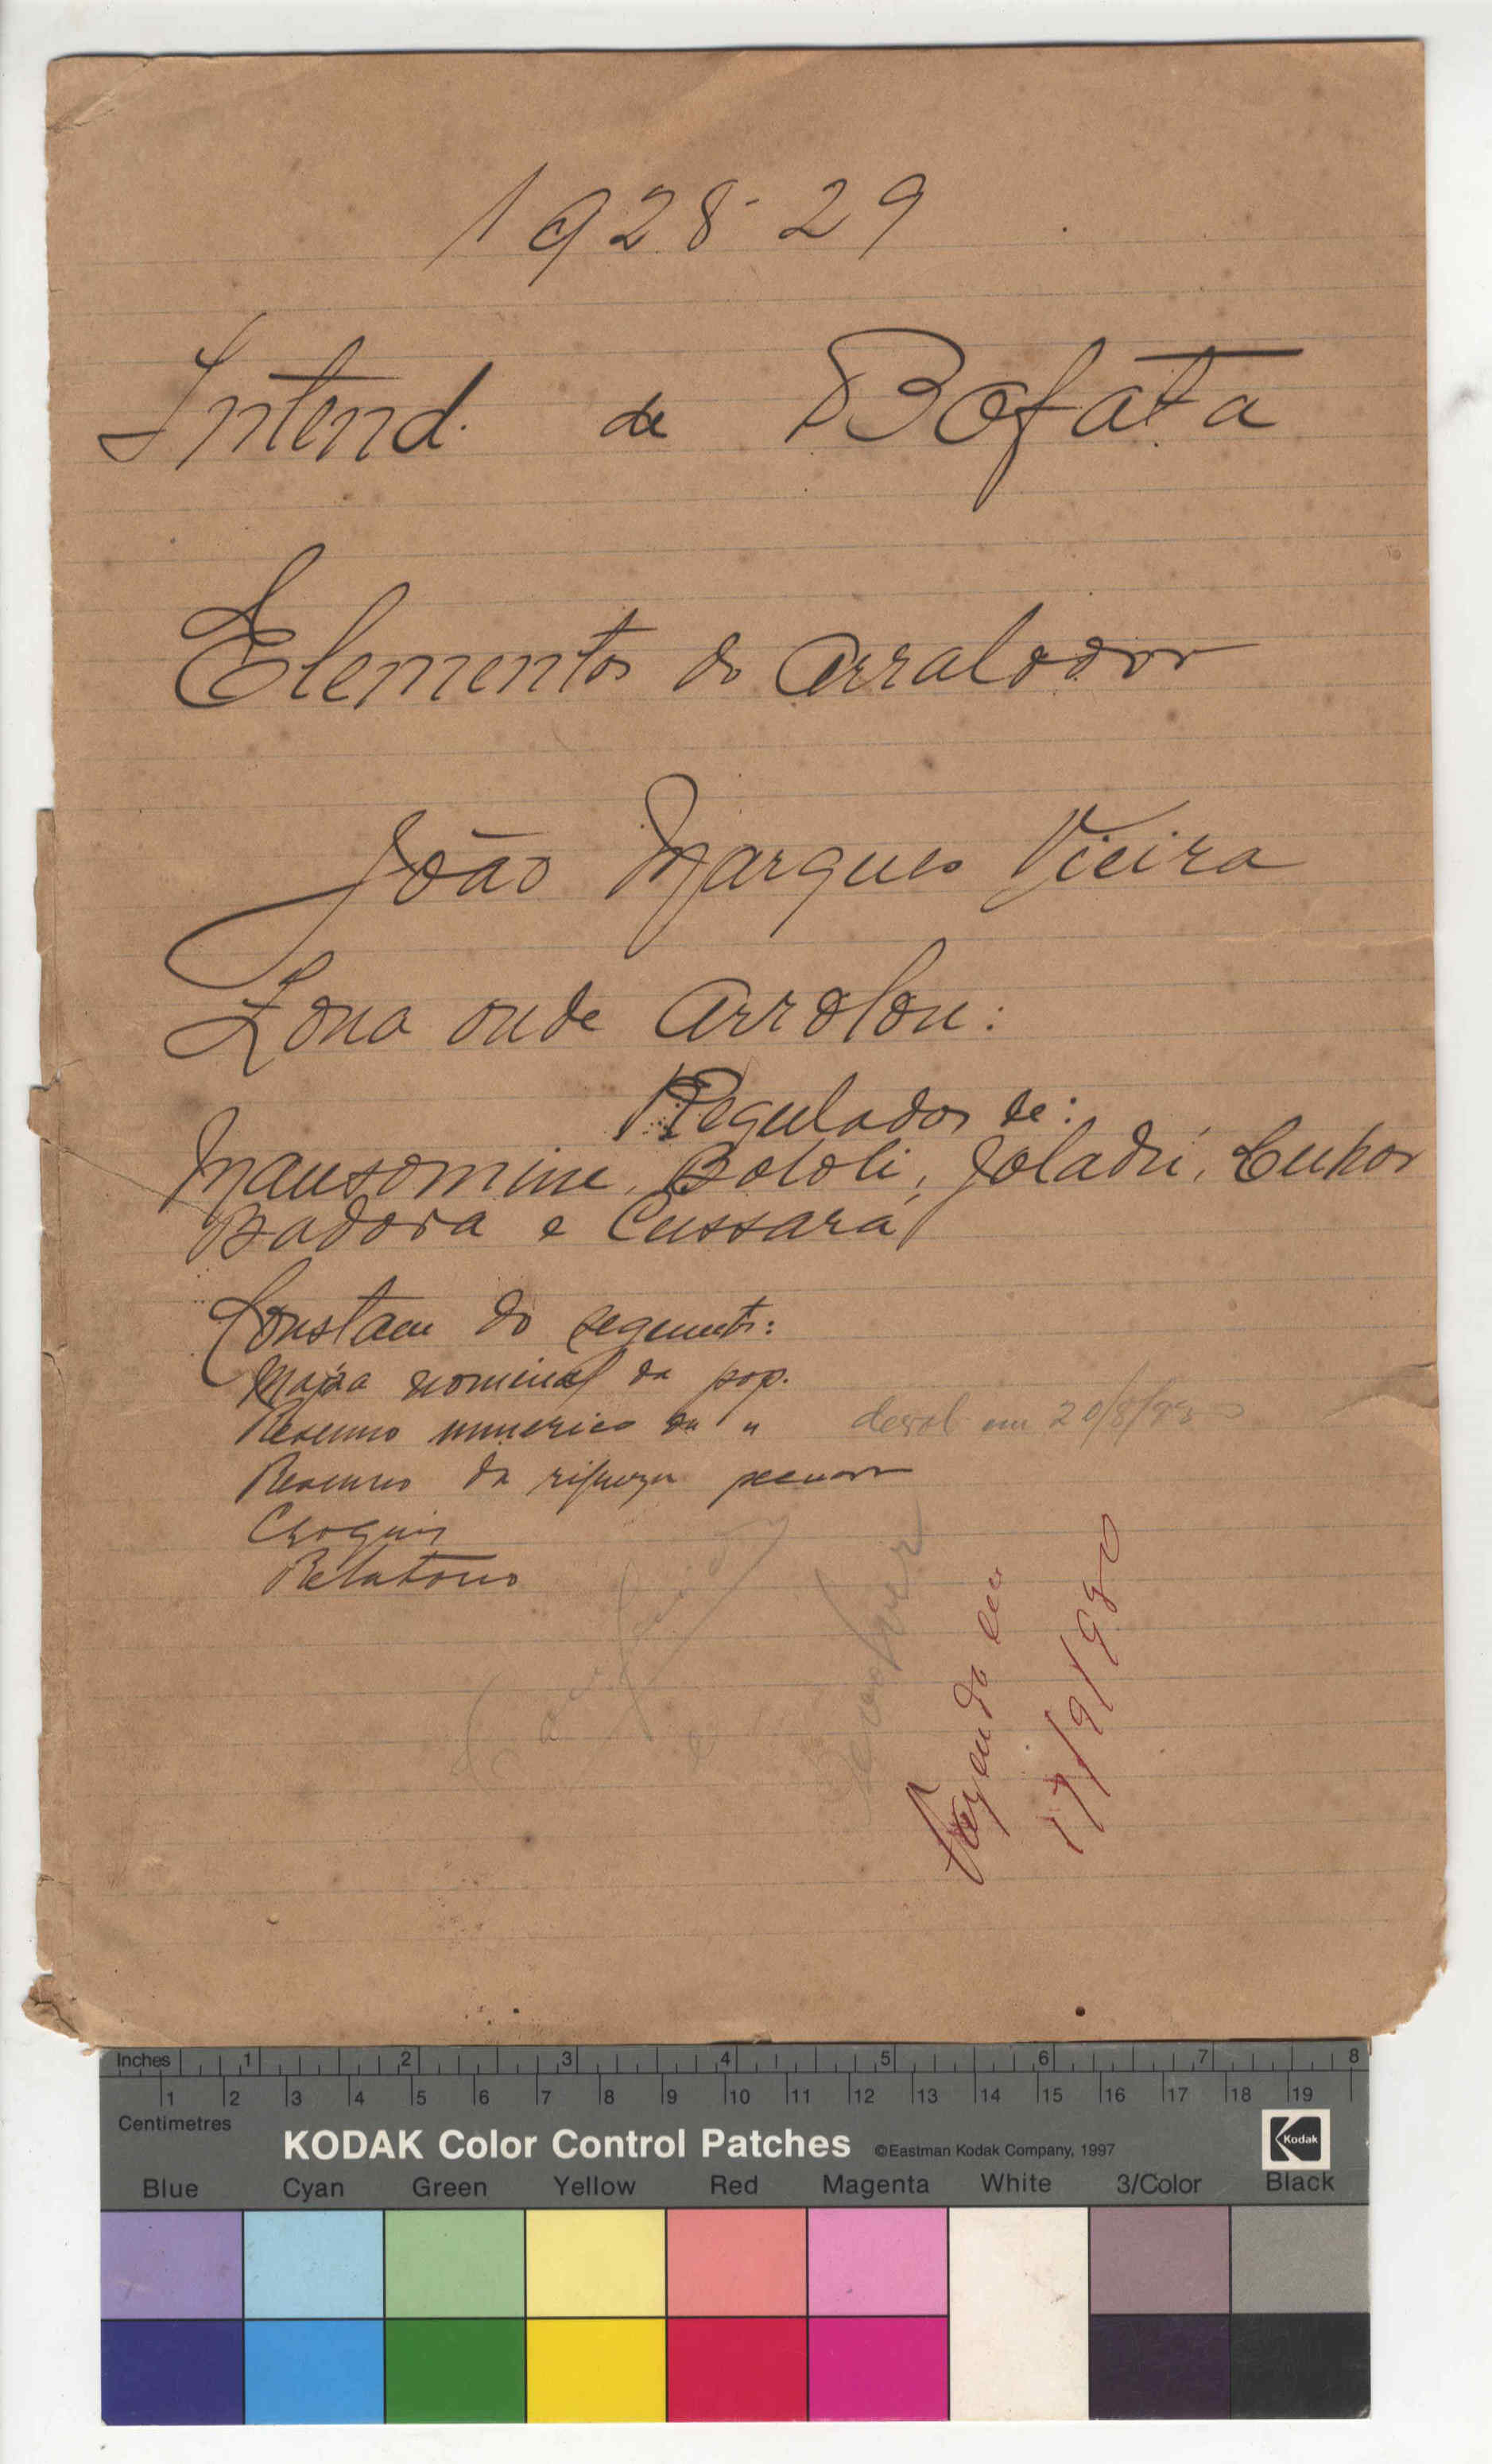 1928-29
Intend. de Bafatá
Elementos do Arrolador
João Marques Vieira
Zona onde arrolou:
Regulados de:
Mansomine, Bololi, Joladú, Cuhor
Badora e Cussará
Constam do seguinte:
Mapa nominal da pop.
Resumo numerico da "
devol em 20/8/930
Resumo da riqueza pecuar
Croquis
Relatorio
e
devolver
em
17/9/930
Inches 1 2 3 4 5 6 7 8
1 2 3 4 5 6 7 8 9 10 11 12 13 14 15 16 17 18 19
Centimetres
KODAK Color Control Patches ©Eastman Kodak Company, 1997 Kodak
Blue Cyan Green Yellow Red Magenta White 3/Color Black